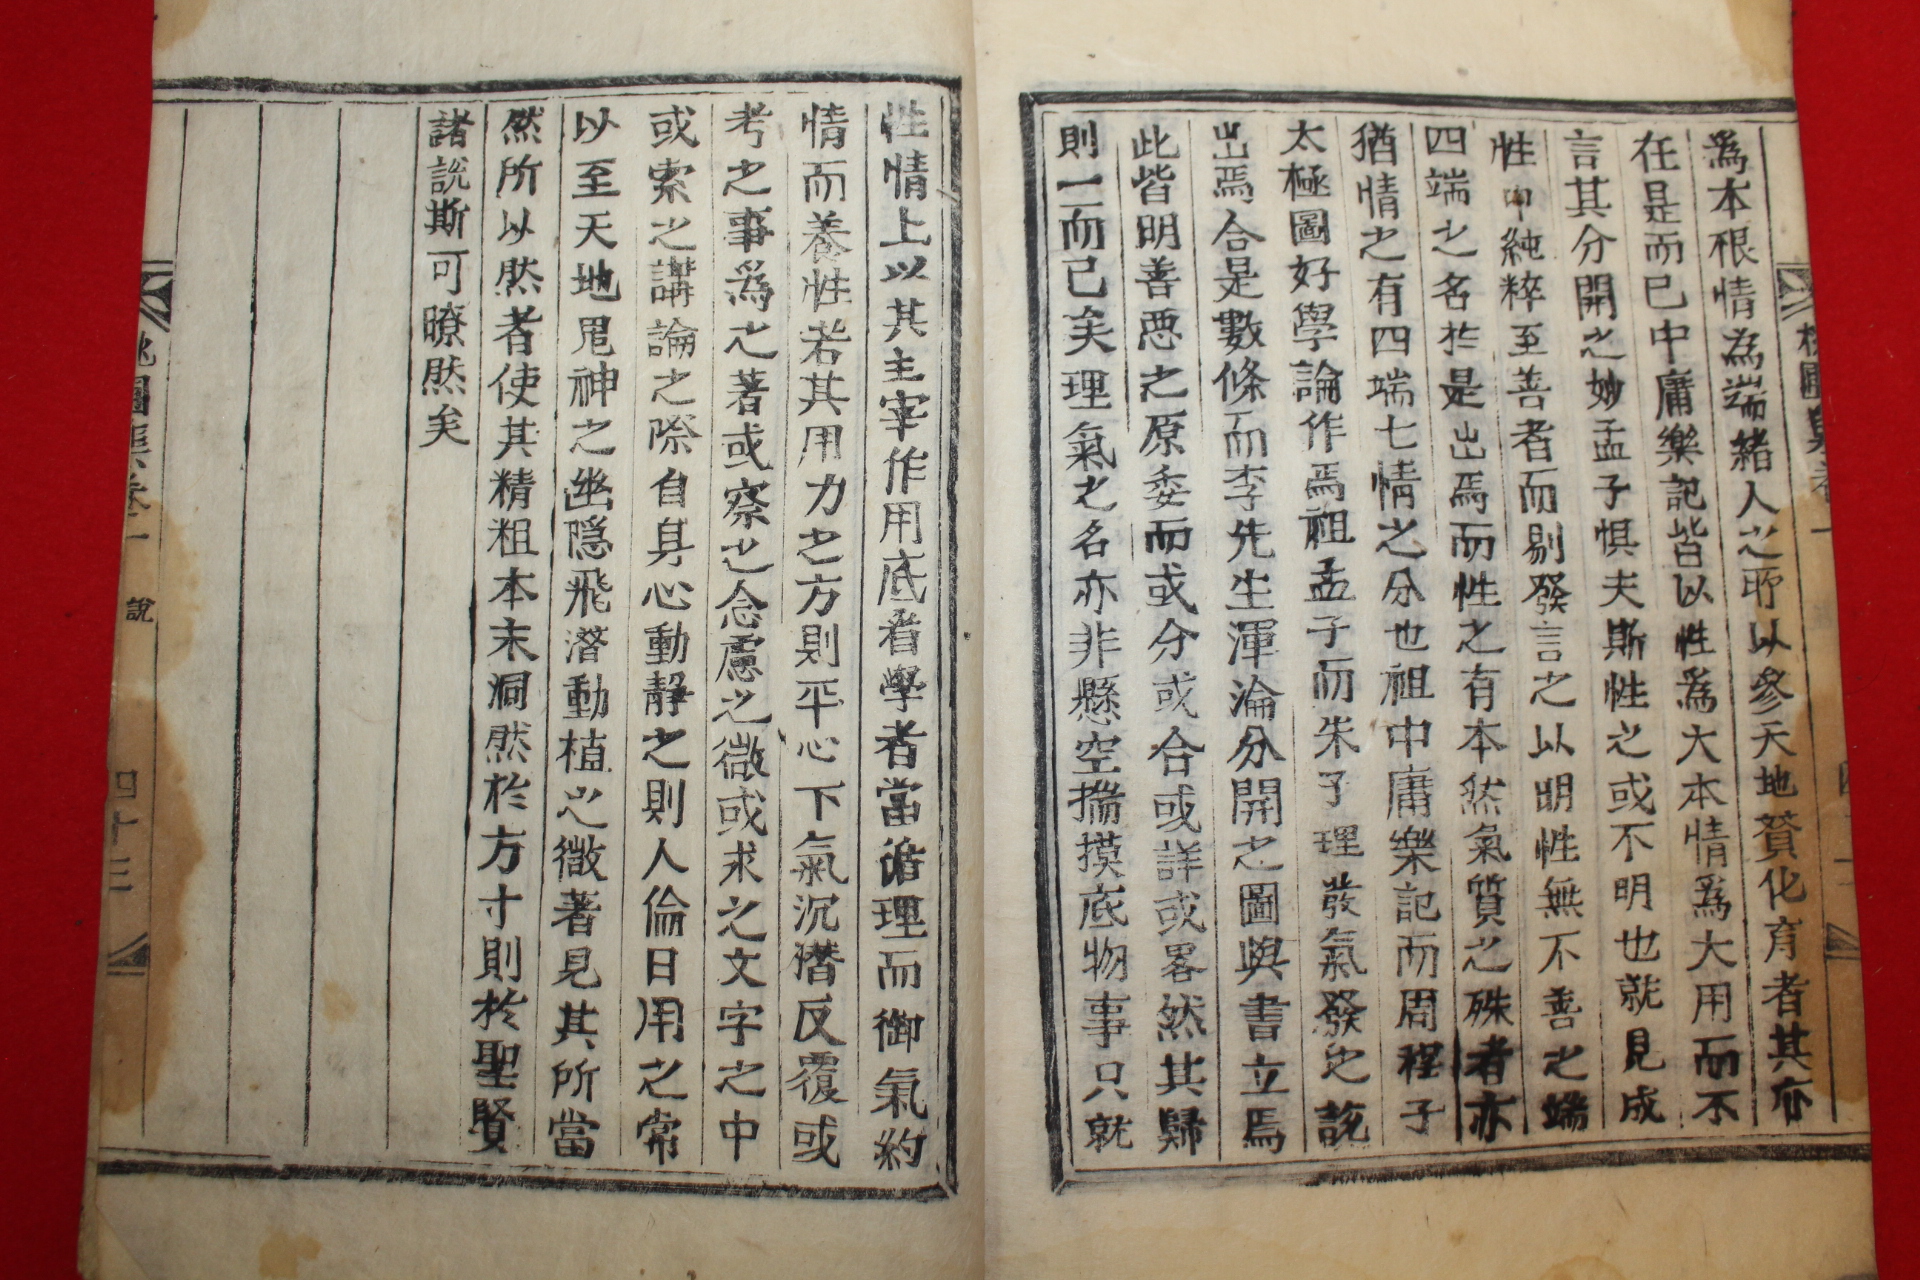 爲本根情爲端緒人之所以參天地贊化育者其亦
在是而已中庸樂記皆以性爲大本情爲大用而不
言其分開之妙孟子惧夫斯性之或不明也就見成
性中純粹至善者而剔發言之以明性無不善之端
四端之名於是出焉而性之有本然氣質之殊者亦
猶情之有四端七情之分也祖中庸樂記而周程子
太極圖好學論作焉祖孟子而朱子理發氣發之說
出焉合是數條而李先生渾淪分開之圖與書立焉
此皆明善惡之原委而或分或合或詳或畧然其歸
則一而已矣理氣之名亦非懸空揣摸底物事只就
性情上以其主宰作用底者學者當循理而御氣約
情而養性若其用力之方則平心下氣沉潛反覆或
考之事爲之著或察之念慮之微或求之文字之中
或索之講論之際自身心動靜之則人倫日用之常
以至天地鬼神之幽隱飛潛動植之微著見其所當
然所以然者使其精粗本末洞然於方寸則於聖賢
諸說斯可瞭然矣
桃圃集卷一
說
四十三